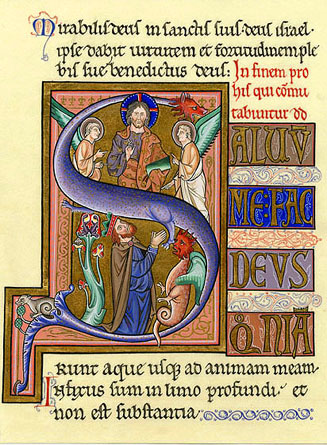 Mirabilis deus in sanctis suis. deus israel.
ipse dabit uirtutem et fortitudinem ple
bis sue benedictus deus: In finem pro
his qui cōmu
tabuntur dd
S ALVŪ
ME FAC
DEVS
QNIA
TRUNT aque usq; ad animam meam
Infixus sum in limo profundi. et
non est substantia